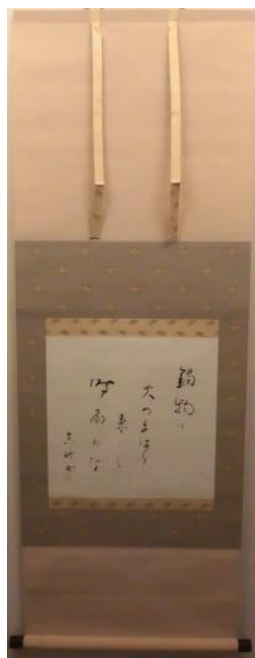 鍋物に
火のまはり
来し
時雨かな
真砂女